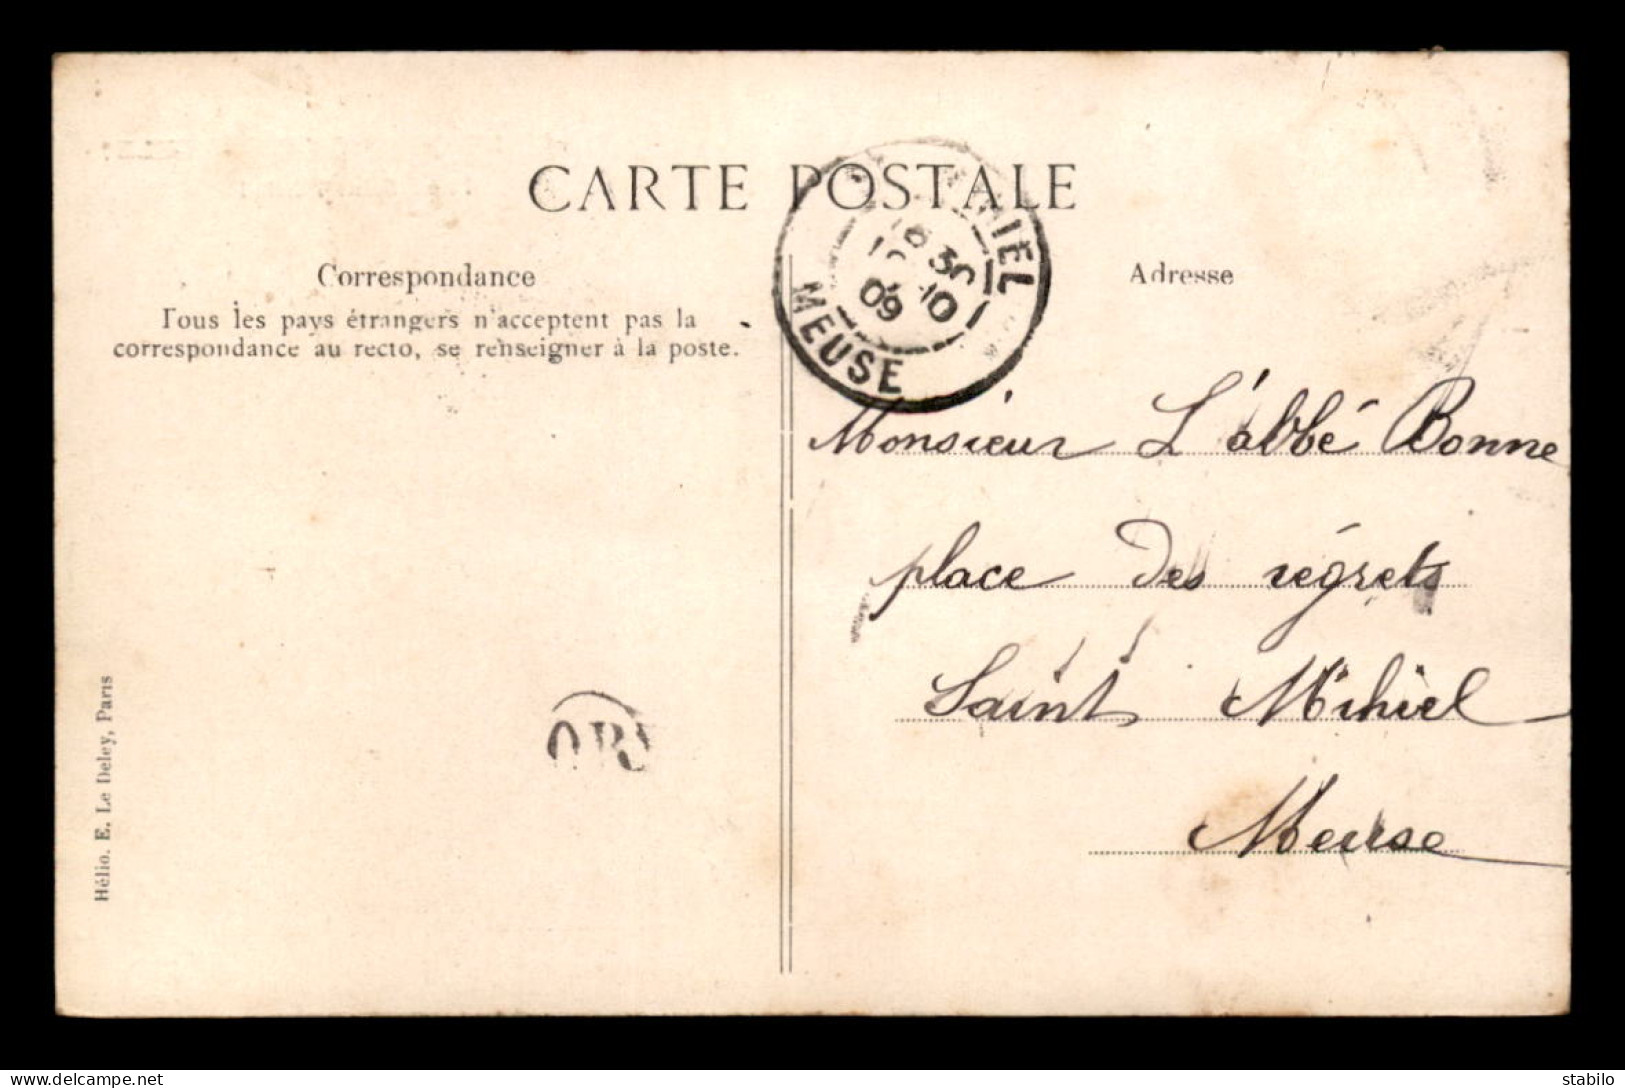 CARTE POSTALE
Correspondance
Tous les pays étrangers n'acceptent pas la
correspondance au recto, se renseigner à la poste.
Adresse
MIHIEL
30
10
09
MEUSE
Monsieur L'abbé Bonne
place des régrets
Saint Mihiel
Meuse
OR
Hélio. E. Le Deley, Paris
delcampe.net
stabilo